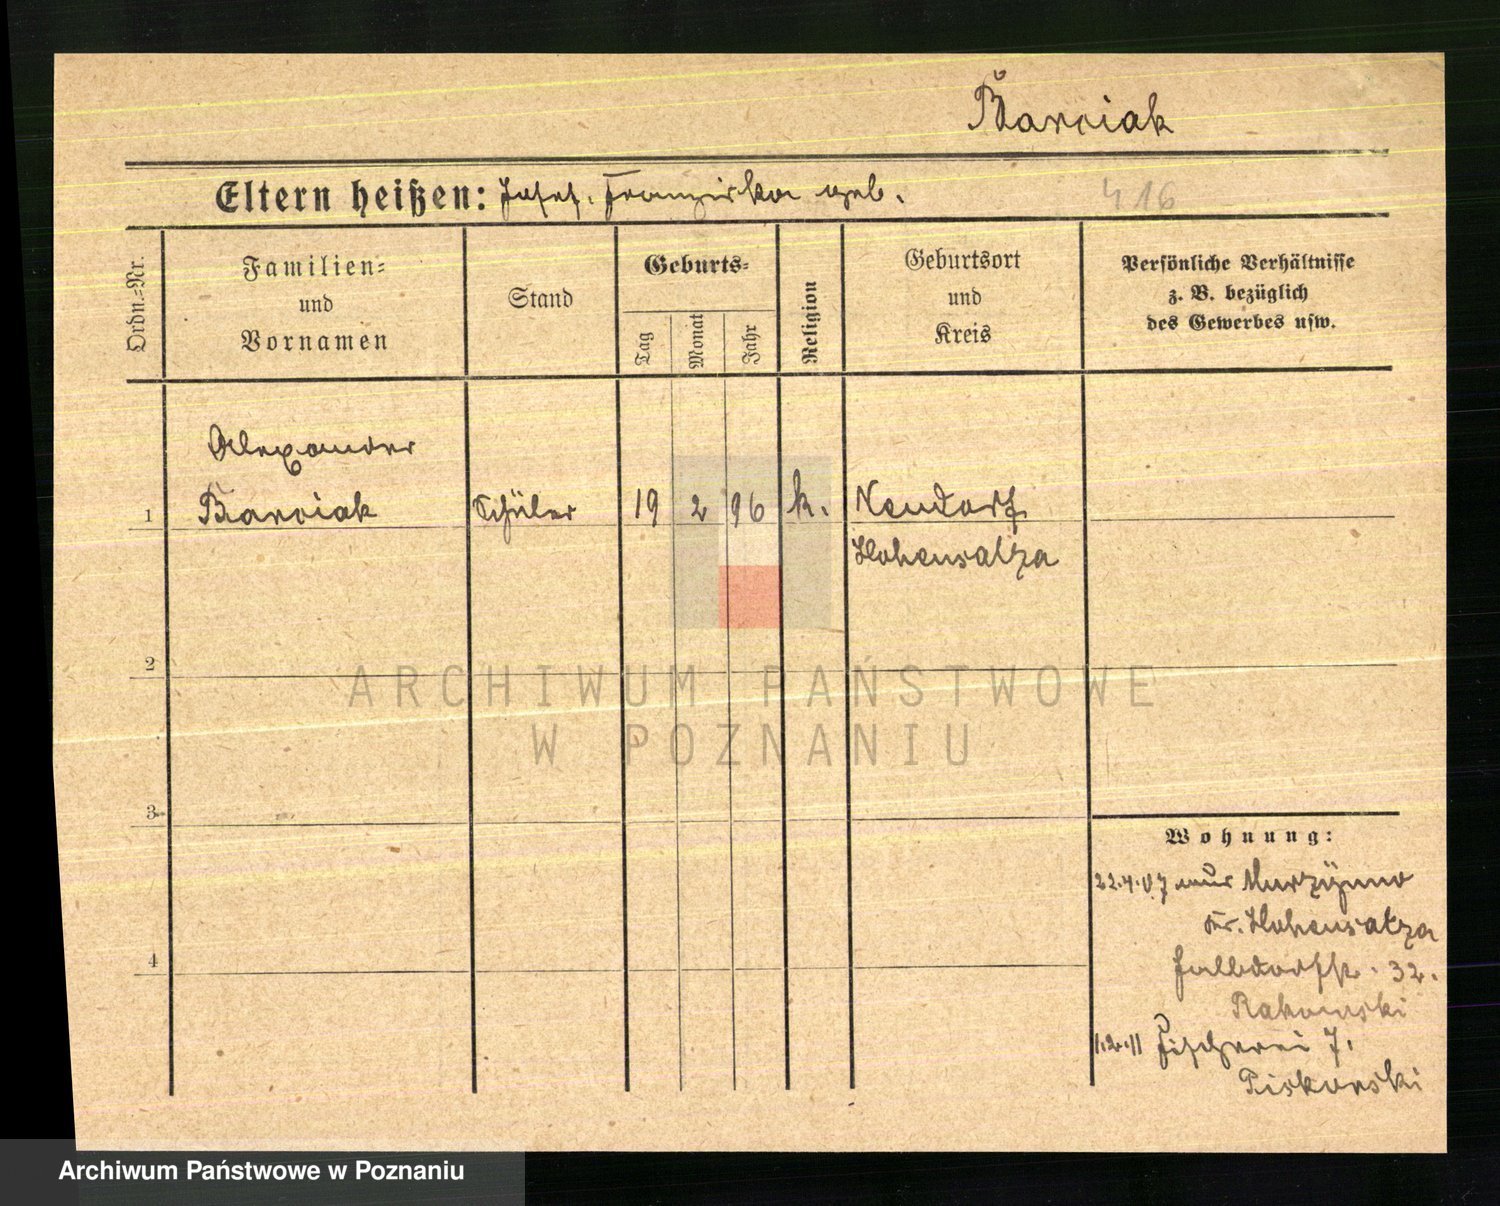 Barciak
Eltern heißen: Josef. Franziska geb.
416
Ordn.=Nr.
Familien=
und
Vornamen
Stand
Geburts=
Tag
Monat
Jahr
Religion
Geburtsort
und
Kreis
Persönliche Verhältnisse
z. B. bezüglich
des Gewerbes usw.
Alexander
1 Barciak Schüler 19 2 96 k. Neudorf
Hohensalza
2
3
4
Wohnung:
22.4.07 aus Murzynno
Kr. Hohensalza
Halbdorfstr. 32.
Rakowski
1.2.11 Fischerei 7.
Piskorski
ARCHIWUM PAŃSTWOWE
W POZNANIU
Archiwum Państwowe w Poznaniu